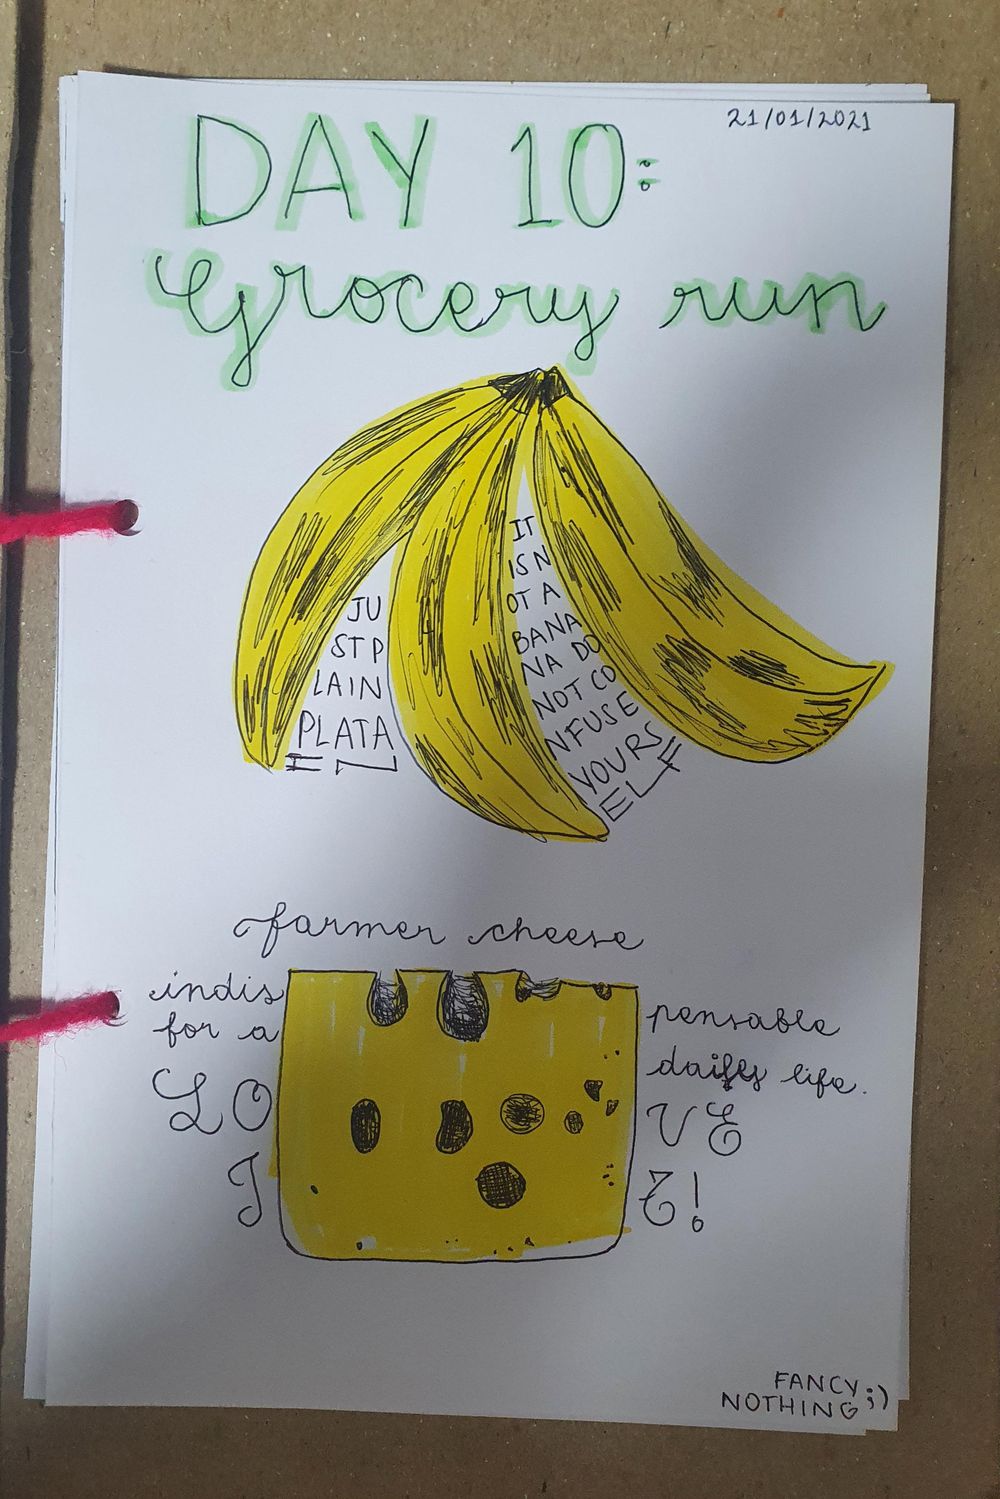 21/01/2021
DAY 10:
Grocery run
JU
ST P
LAIN
PLATA
N
IT
IS N
OT A
BANA
NA DO
NOT CO
NFUSE
YOURS
ELF
farmer cheese
indis pensable
for a daily life.
LO VE
I T!
FANCY
NOTHING ;)